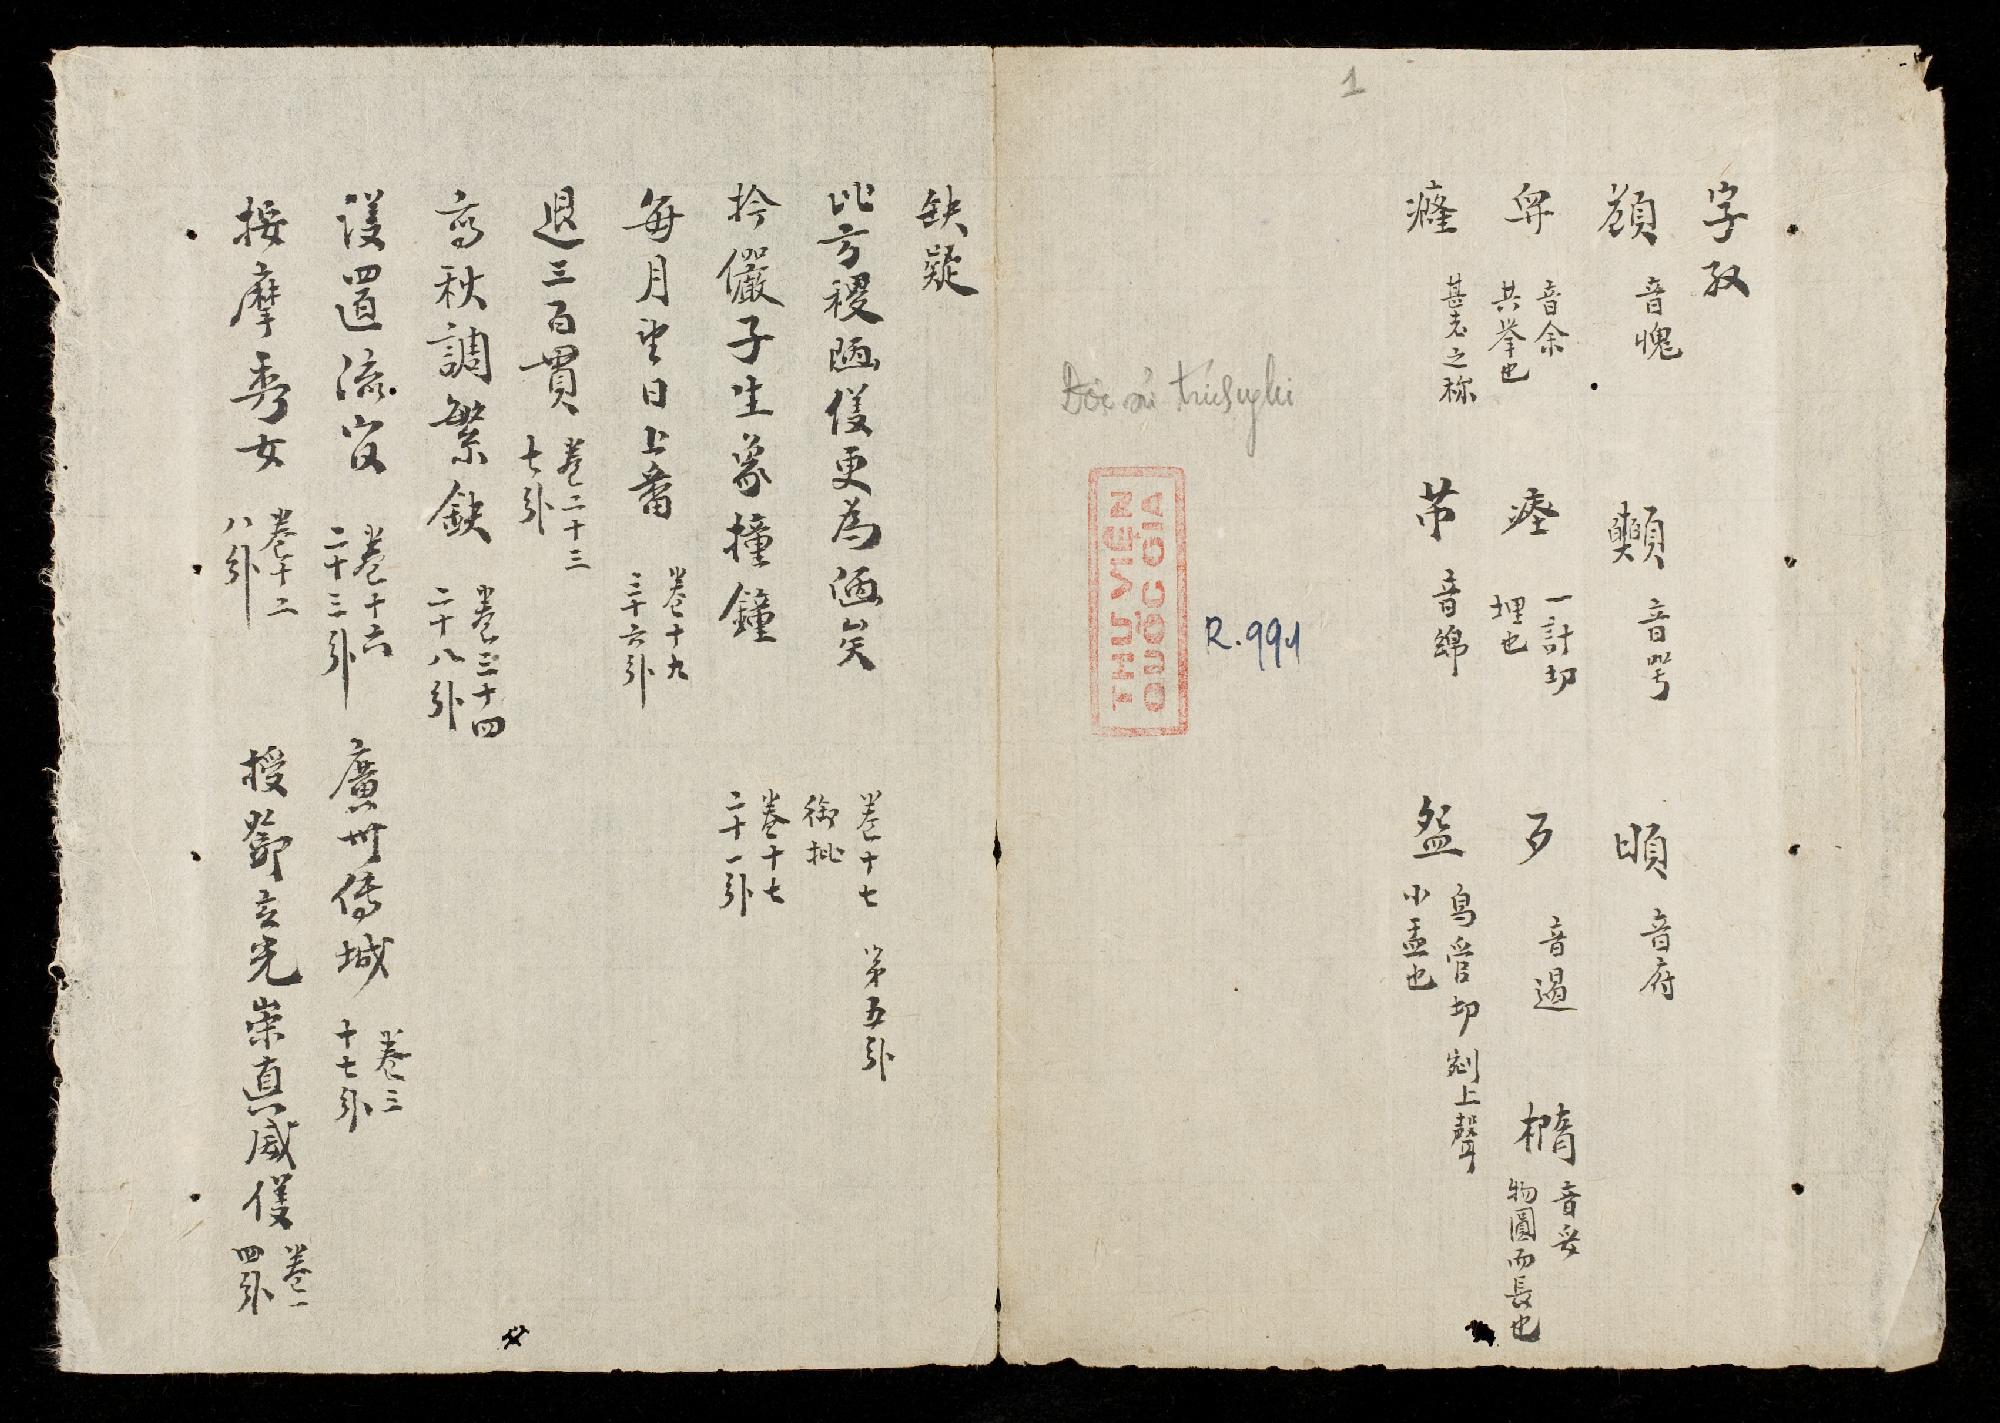 1
字攷
顀 音愧
音咢
音府
舁 音余
共挙也
瘞 一計切
埋也
歹 音遏
橢 音妥
物圓而長也
癃 甚老之称
芇 音綿
盌 烏管切 剜上聲
小盂也
Độc sử trích nghi
THƯ VIỆN
QUỐC GIA
R.991
缺疑
比方稷
更為
矣
卷十七 第五
御批
拎儼子生象撞鐘
卷十七
二十一
每月望日上番
卷十九
三十六
退三百貫
卷二十三
七
高秋調繁缺
卷三十四
二十八
置流官
卷十六
二十三
廣州傅城
卷三
十七
按摩秀女
卷十二
八
授鄧玄光崇真威儀
卷一
四